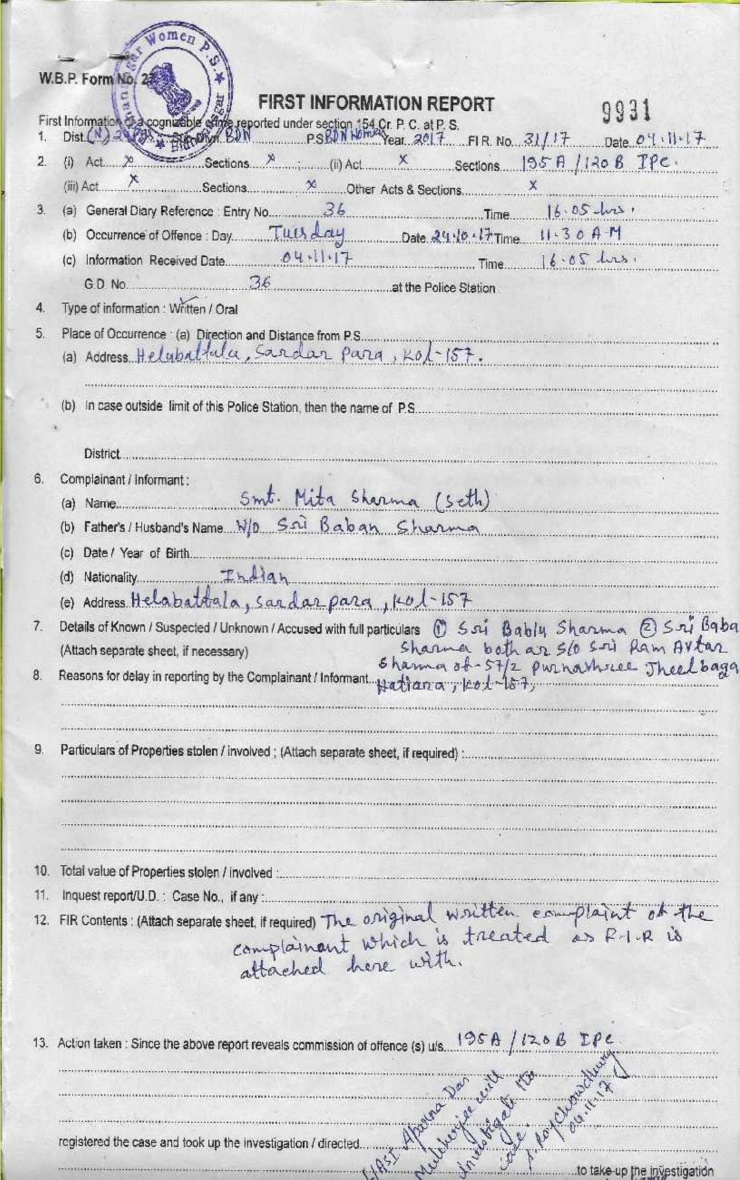 Women P.S.
W.B.P. Form No. 27
FIRST INFORMATION REPORT
9931
First Information of a cognizable crime reported under section 154 Cr. P. C. at P. S.
1. Dist. (N) 24 Pgs. BDN P.S. BDN Women Year 2017 FIR. No. 31/17 Date 04.11.17
2. (i) Act x Sections x ; (ii) Act x Sections 195A/120B IPC.
(iii) Act x Sections x Other Acts & Sections x
3. (a) General Diary Reference : Entry No. 36 Time 16.05 hrs.
(b) Occurrence of Offence : Day Tuesday Date 24.10.17 Time 11.30 AM
(c) Information Received Date 04.11.17 Time 16.05 hrs.
G.D. No. 36 at the Police Station
4. Type of information : Written / Oral
5. Place of Occurrence : (a) Direction and Distance from P.S.
(a) Address Helabattala, Sardar Para, Kol-157.
(b) In case outside limit of this Police Station, then the name of P.S.
District
6. Complainant / Informant :
(a) Name Smt. Mita Sharma (Seth)
(b) Father's / Husband's Name W/O Sri Baban Sharma
(c) Date / Year of Birth
(d) Nationality Indian
(e) Address Helabattala, Sardar para, Kol-157
7. Details of Known / Suspected / Unknown / Accused with full particulars ① Sri Bablu Sharma ② Sri Baba
(Attach separate sheet, if necessary) Sharma both are S/o Sri Ram Avtar
Sharma of-57/2 Purnashree Jheelbaga
8. Reasons for delay in reporting by the Complainant / Informant Hatiara, Kol-157,
9. Particulars of Properties stolen / involved ; (Attach separate sheet, if required) :
10. Total value of Properties stolen / involved :
11. Inquest report/U.D. : Case No., if any :
12. FIR Contents : (Attach separate sheet, if required) The original written complaint of the
complainant which is treated as F.I.R is
attached here with.
13. Action taken : Since the above report reveals commission of offence (s) u/s. 195A/120B IPC
L/ASI Aparna Das
Mukherjee will
investigate the
case.
A. Roy Chowdhury
04.11.17
registered the case and took up the investigation / directed
to take up the investigation